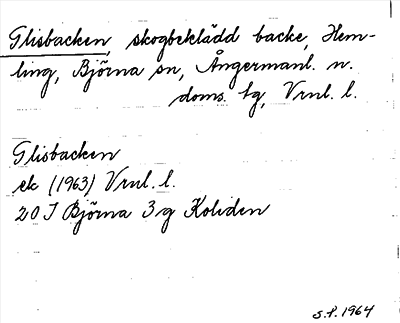 Glisbacken, skogbeklädd backe, Hem-
ling, Björna sn, Ångermanl. n.
doms. bg, Vrnl. l.
Glisbacken
ek (1963) Vrnl. l.
20 J Björna 3 g Koliden
S.P. 1964